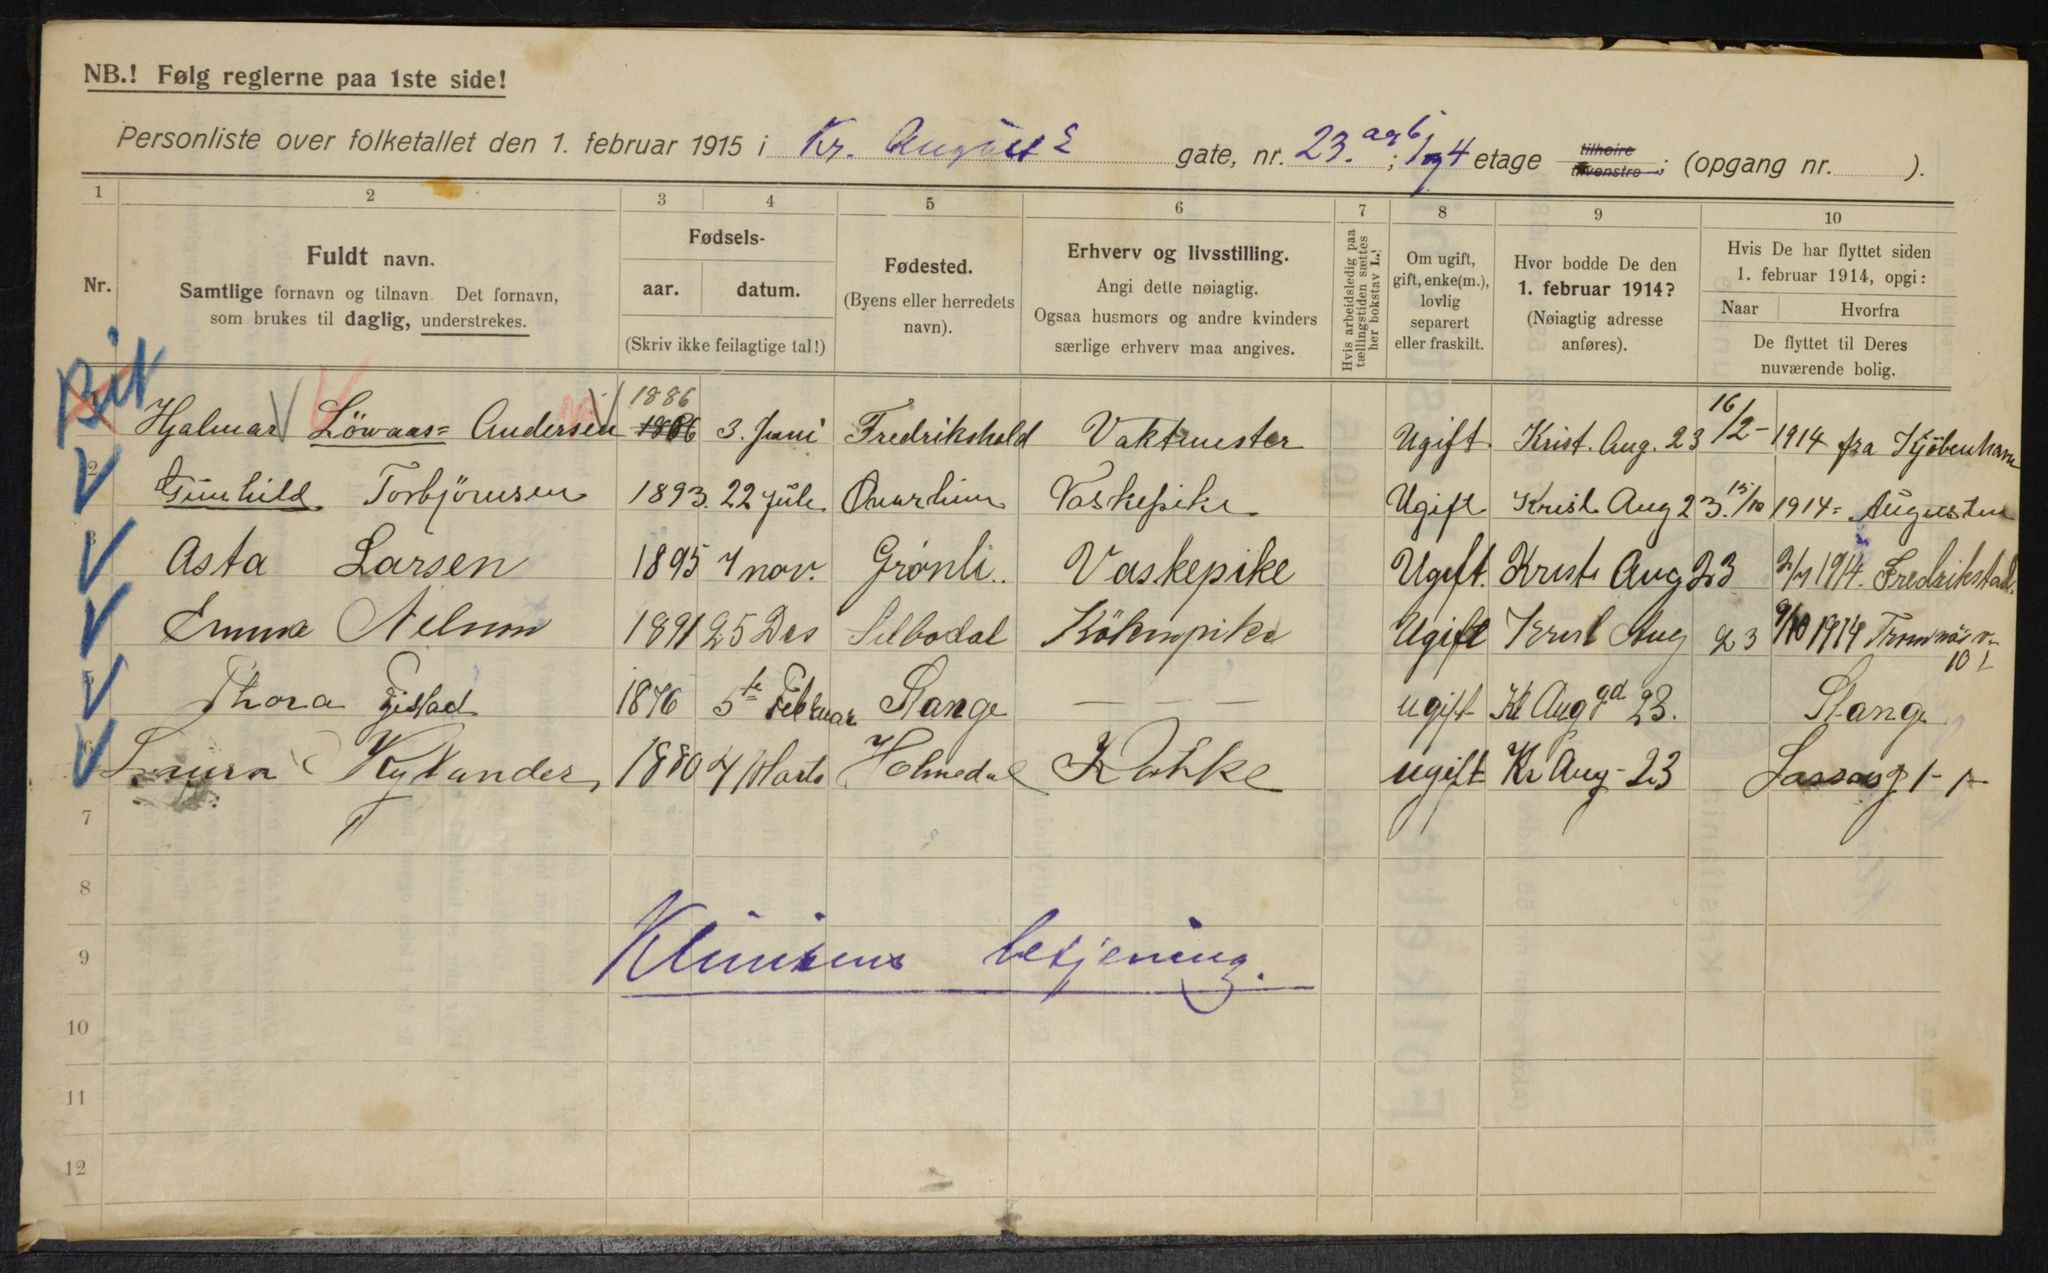 NB.! Følg reglerne paa 1ste side!
Personliste over folketallet den 1. februar 1915 i Kr. August gate, nr. 23. ; 4 etage tilhøire tilvenstre; (opgang nr. ).
1 2 3 4 5 6 7 8 9 10
Nr.
Fuldt navn.
Samtlige fornavn og tilnavn. Det fornavn,
som brukes til daglig, understrekes.
Fødsels-
aar. datum.
(Skriv ikke feilagtige tal!)
Fødested.
(Byens eller herredets
navn).
Erhverv og livsstilling.
Angi dette nøiagtig.
Ogsaa husmors og andre kvinders
særlige erhverv maa angives.
Hvis arbeidsledig paa
tællingstiden sættes
her bokstav L.!
Om ugift,
gift, enke(m.),
lovlig
separert
eller fraskilt.
Hvor bodde De den
1. februar 1914?
(Nøiagtig adresse
anføres).
Hvis De har flyttet siden
1. februar 1914, opgi:
Naar Hvorfra
De flyttet til Deres
nuværende bolig.
Bit
1886
Hjalmar Löwaas= Andersen 1886 3. Juni Fredrikshald Vaktmester Ugift Krist. Aug. 23 16/2 - 1914 fra Kjöbenhavn
2 Gunhild Torbjörnsen 1893. 22 Juli Vaskepike Ugift Krist Aug 23. 15/10 1914=
3 Asta Larsen 1895 7 nov. Grønli.. Vaskepike Ugift. Krist Aug 23 2/7 1914. Fredrikstad.
Emma Nelson 1891 25 Des Silbodal Kökenpike Ugift Krist Aug 23 9/10 1914
10 I
5 Thora 1876 5te Februar Stange — — — ugift Kr Aug gd 23. Stange
6 Laura Kylander, 1880 7 Marts Holmedal Kokke ugift Kr Aug- 23
7
8
9 Klinikens betjening.
10
11
12